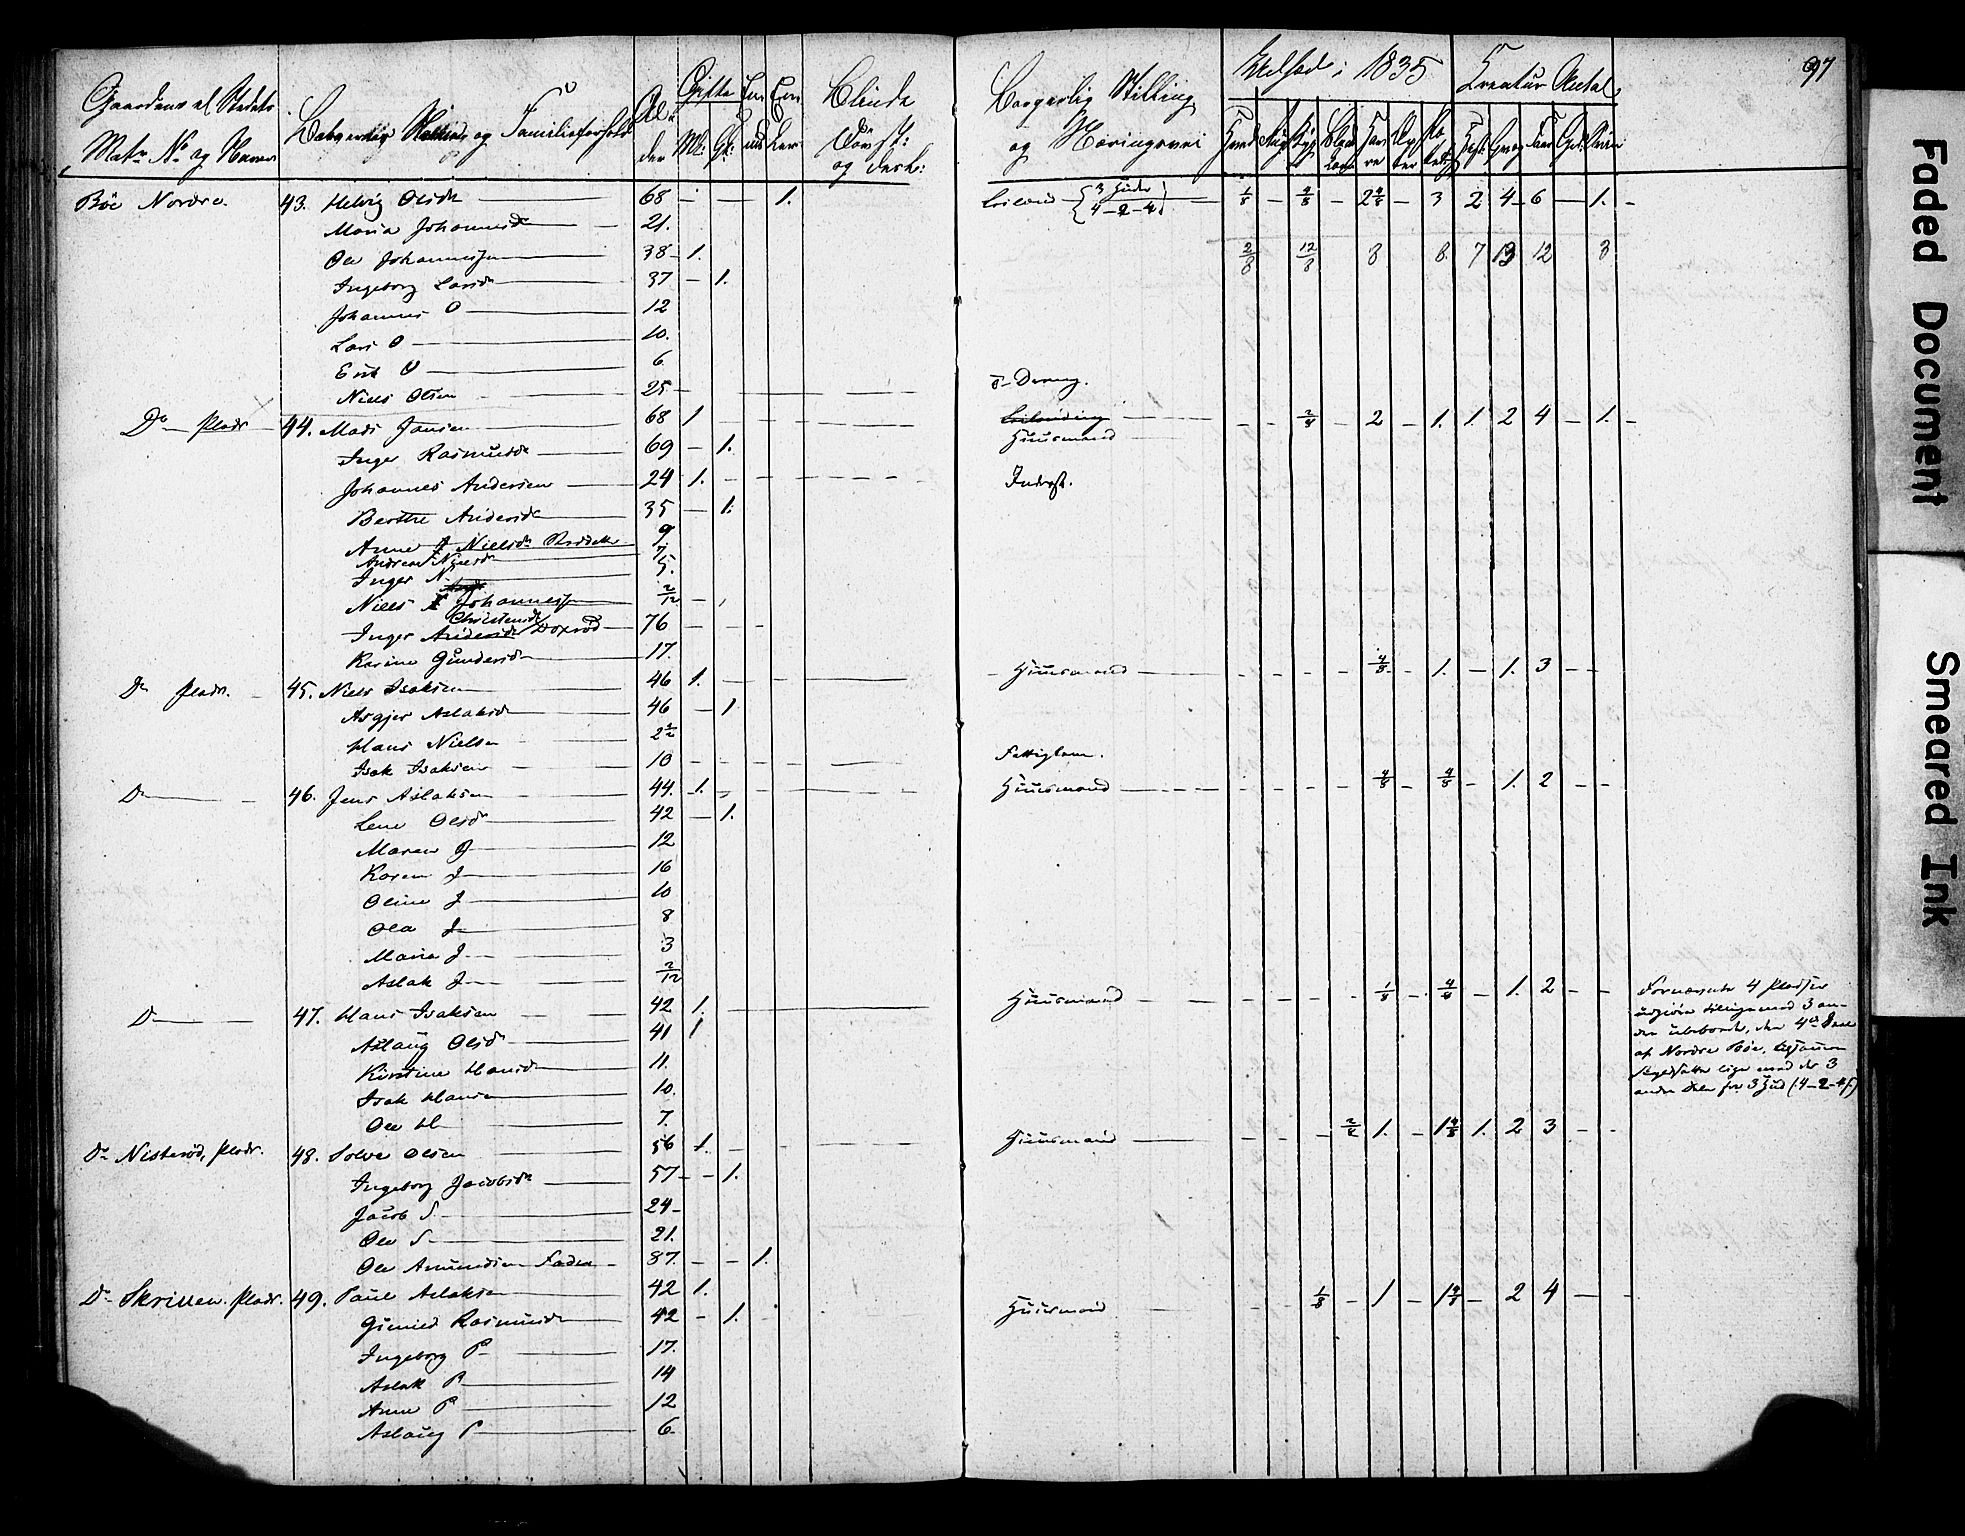 97
Gaardens el Stedets Matr No og Navn
og Familieforhold
Alder
Gifte
M: Qk:
Blinde
Døvst:
og Borgerlig Stilling og Næringsvei
Udsæd i 1835
Kreatur Antal
Bøe Nordre 43. Helvig Olsdr 68 — 1. 3 Huder 4-2-4 1/8 2 4/8 3 2 4 6 1.
Maria Johannesdr 21.
Ole Johannessen 38 1. 2/8 12/8 8 8 7 13 12 3
Ingeborg Larsdr 37 1.
Johannes O 12
Lars O 10.
Erik O 6
Niels Olsen 25
Do Plads 44. Mads Jansen 68 1 Huusmand 2 1. 1. 2 4 1.
Inger Rasmusdr 69 1.
Johannes Andersen 24 1. Inderst.
Berthe Andersdr 35 1.
Anne Nielsdr 9
Andrea Nielsdr 7
Inger N. 5.
Niels Johannessen 2/12
Inger Christensdr 76
Karine Gundersdr 17.
Do Plads. 45. Niels Isaksen 46 1. Huusmand 4/8 1. 1. 3
Asgjer Aslaksdr 46 1
Hans Nielsen 2 1/2
Isak Isaksen 10 Fattiglem.
Do 46. Jens Aslaksen 44. 1. Huusmand 4/8 4/8 1. 2
Lene Olsdr 42 1.
Maren J 12
Karen J 16
Oline J 10
Ola J 8
Maria J. 3
Aslak J 2/12
Do 47. Hans Isaksen 42 1. Huusmand 1/8 4/8 1. 2
Aslaug Olsdr 41 1
Kirstine Hansdr 11.
Isak Hansen 10.
Ole H 7.
Fornævnte 4 Pladser
udgiøre tillige med 3 an-
dre ubeboede, den 4de Deel
af Nordre Bøe,
lige med de 3
andre Dele for 3 Hud (4-2-4)
Do Nisterød, Plads. 48. Solve Olsen 56 1. Huusmand 2/4 1. 1 4/8 1. 2 3
Ingeborg Jacobsdr 57 1.
Jacob S. 24
Ole S 21.
Ole Amundsen Fader 87. 1.
Do Skriuen Plads. 49. Paul Aslaksen 42 1. Huusmand 1/8 1 1 4/8 2 4
Gunild Rasmusdr 42 1.
Ingeborg P 17.
Aslak P 14
Anne P 12
Aslaug P 6
Faded Document
Smeared Ink